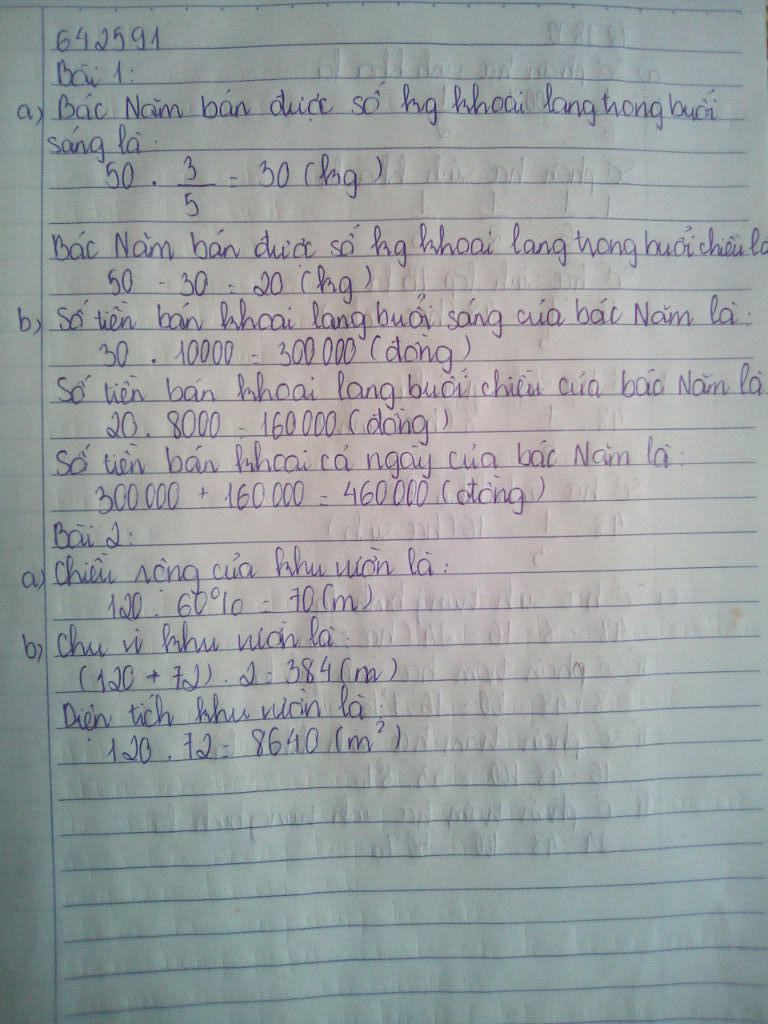 642591
Bài 1:
a) Bác Năm bán được số kg khoai lang trong buổi
sáng là:
50 . 3/5 = 30 (kg)
Bác Năm bán được số kg khoai lang trong buổi chiều là
50 - 30 = 20 (kg)
b) Số tiền bán khoai lang buổi sáng của bác Năm là:
30 . 10000 = 300 000 (đồng)
Số tiền bán khoai lang buổi chiều của bác Năm là
20 . 8000 = 160 000 (đồng)
Số tiền bán khoai cả ngày của bác Năm là:
300 000 + 160 000 = 460 000 (đồng)
Bài 2:
a) Chiều rộng của khu vườn là:
120 . 60% = 70 (m)
b) Chu vi khu vườn là:
(120 + 72) . 2 = 384 (m)
Diện tích khu vườn là:
120 . 72 = 8640 (m²)